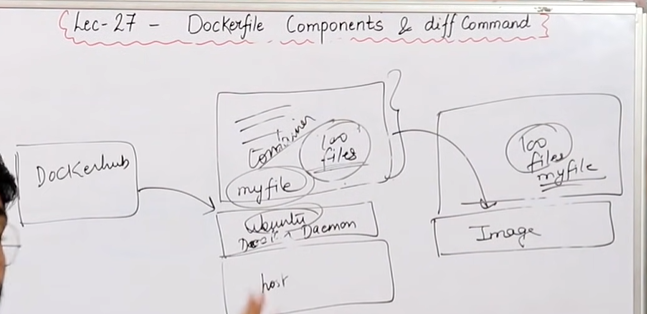 Lec-27 - Dockerfile Components & diff Command
DocKerhub
Container
100
files
myfile
ubuntu
Daemon
host
100
files
myfile
Image